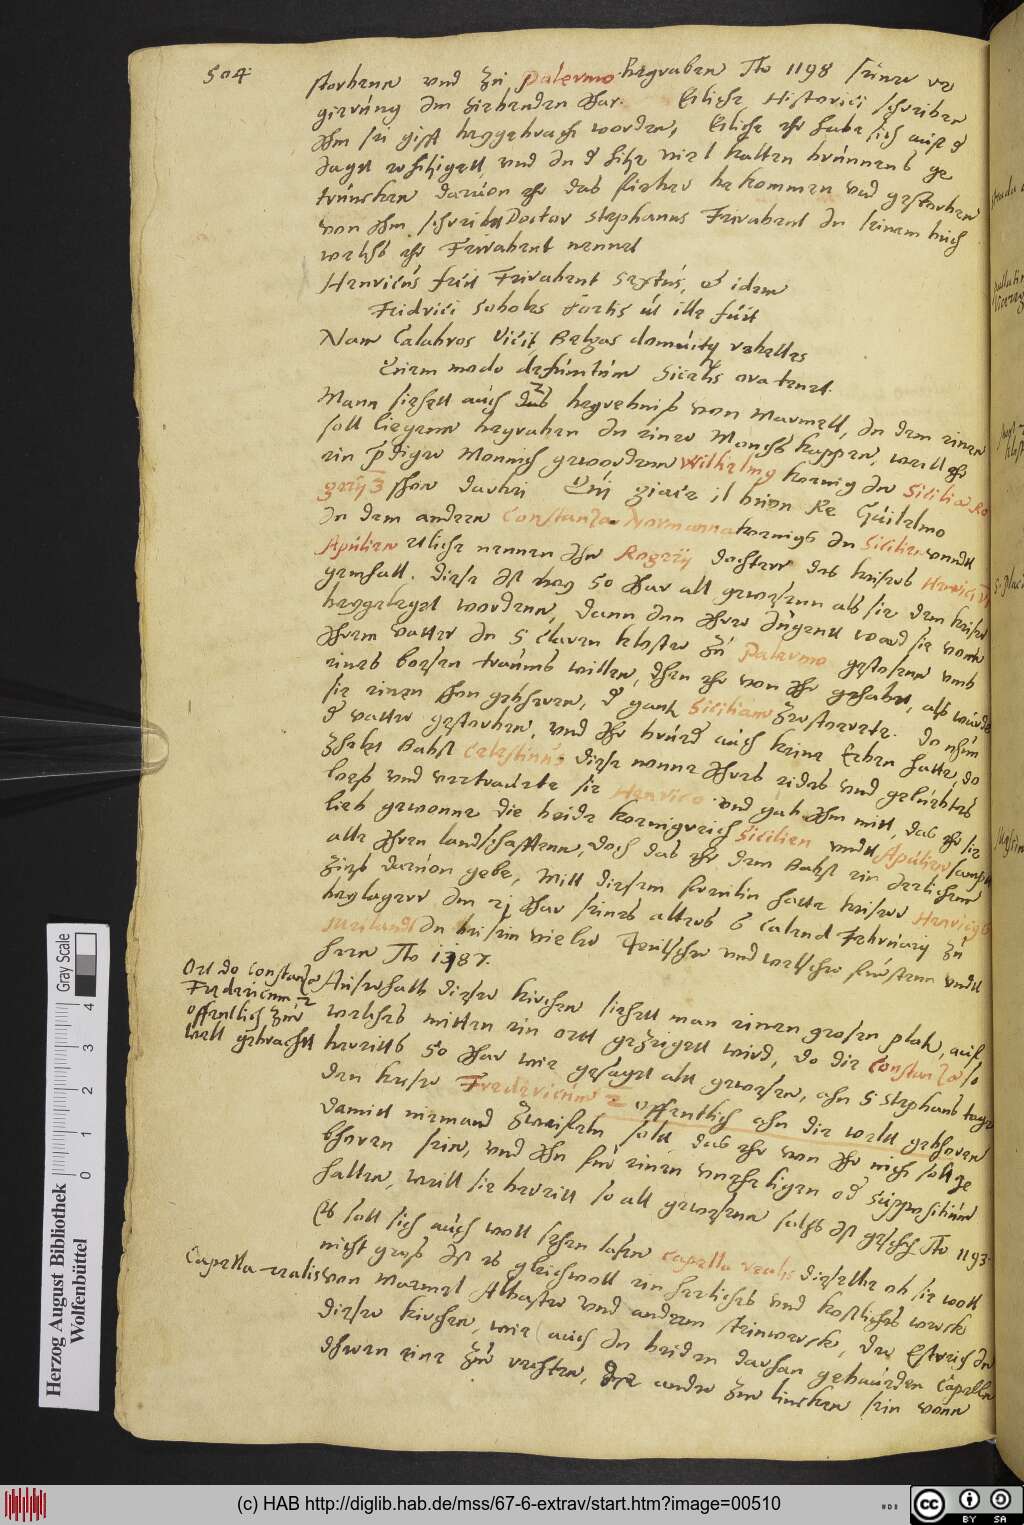 504
storbenn und zu Palermo begraben A̅o 1198 seiner re
gierung im siebenden Jhar. Etliche Historici schreiben
Jhm sei gifft beygebrach worden, Etliche ehr habe sich auff d
Jaget erhitziget, und in d hitz viel kalten brunnens ge
truncken davon ehr das fieber bekommen und gestorben
von Jhm schreibt Doctor Stephanus Frivabent in seinem buch
welchs ehr Frivabent nennet
Henricus fuit Frivabent Sextus, et idem
Fridrici soboles fortis ut ille fuit
Nam Calabros vicit, Belgas domuitq rebelles
Quem modo defunctum Siculis ora tenet.
Mann siehett auch das begrebniß von Marmell, in dem einen
soll liegenn begraben in einer Monchs kappen, weill ehr
ein p̅diger Monnich gewordenn Wilhelmg koenig in Sicilia Ro
gerij 3 shon darbei Qui giace il buon Re Guilelmo
In dem andern Constanza Normanna koenigs in Sicilien unndt
Apulien etliche nennen Jhn Rogerij dochterr des keisers Henrici VI
gemhall. diese ist bey 50 Jhar alt gewesenn als sie dem keiser
beygeleget wordenn, dann inn Jhrer Jugentt ward sie vonn
Jhrem vatter in S Claren kloster zu Palermo gestosenn umb
eines boesen traums willen, den ehr von Jhr gehabtt, alß wurde
sie einen shon gebheren, d gantz Sicilianen zerstoerete. Do nhun
d vatter gestorben, und Jhr brud auch keine Erben hatte, do
zhelet Babst Celestinus diese nonne Jhres eides und geluebtes
loeß und vertrauete sie Henrico und gab Jhm mitt, das ehr sie
lieb gewonne die beide koenigreich Sicilien undt Apulien sampt
alle Jhren landschafftenn, doch das ehr dem Babst ein Jerlichenn
Zinß davon gebe, Mitt diesem freulin hatte keiser Henricg 6
beylagerr im 21 Jhar seines alters 6 Calend Februarij zu
Meilandt in beisein vieler Teutscher und welscher furstenn undt
herrn A̅o 1187.
Ort do Constanza
Fredericum 2
offentlich zur
welt gebracht
Auserhalb dieser kirchen siehett man einen grosen platz, auff
welches mitten ein ortt gezeigett wird, do die Constanza so
bereitts 50 Jhar wie gesaget alt gewesen, ahn S Stephans tage
den keiser Fredericum 2 offentlich ahn die weltt gebhoren
damitt niemand zweifeln solt das ehr von Jhr nich solt ge
bhoren sein, und Jhn fur einen unehligen od suppositium
halten, weill sie bereitt so alt gewesenn solchs ist geschehe A̅o 1193.
Capella realis
Es soll sich auch woll sehen lasen Capella realis dieselbe ob sie woll
nicht groß ist es gleichwoll ein herliches und kostliches werck
von Marmel Albaster und anderm steinwerck, der Estrich in
dieser kirchen, wie auch in beiden darhan gebaueden Capelln
dheren eine zur rechten, die ander zur lincken sein vonn
Herzog August Bibliothek
Wolfenbüttel
Gray Scale
0 1 2 3 4
(c) HAB http://diglib.hab.de/mss/67-6-extrav/start.htm?image=00510
cc BY SA